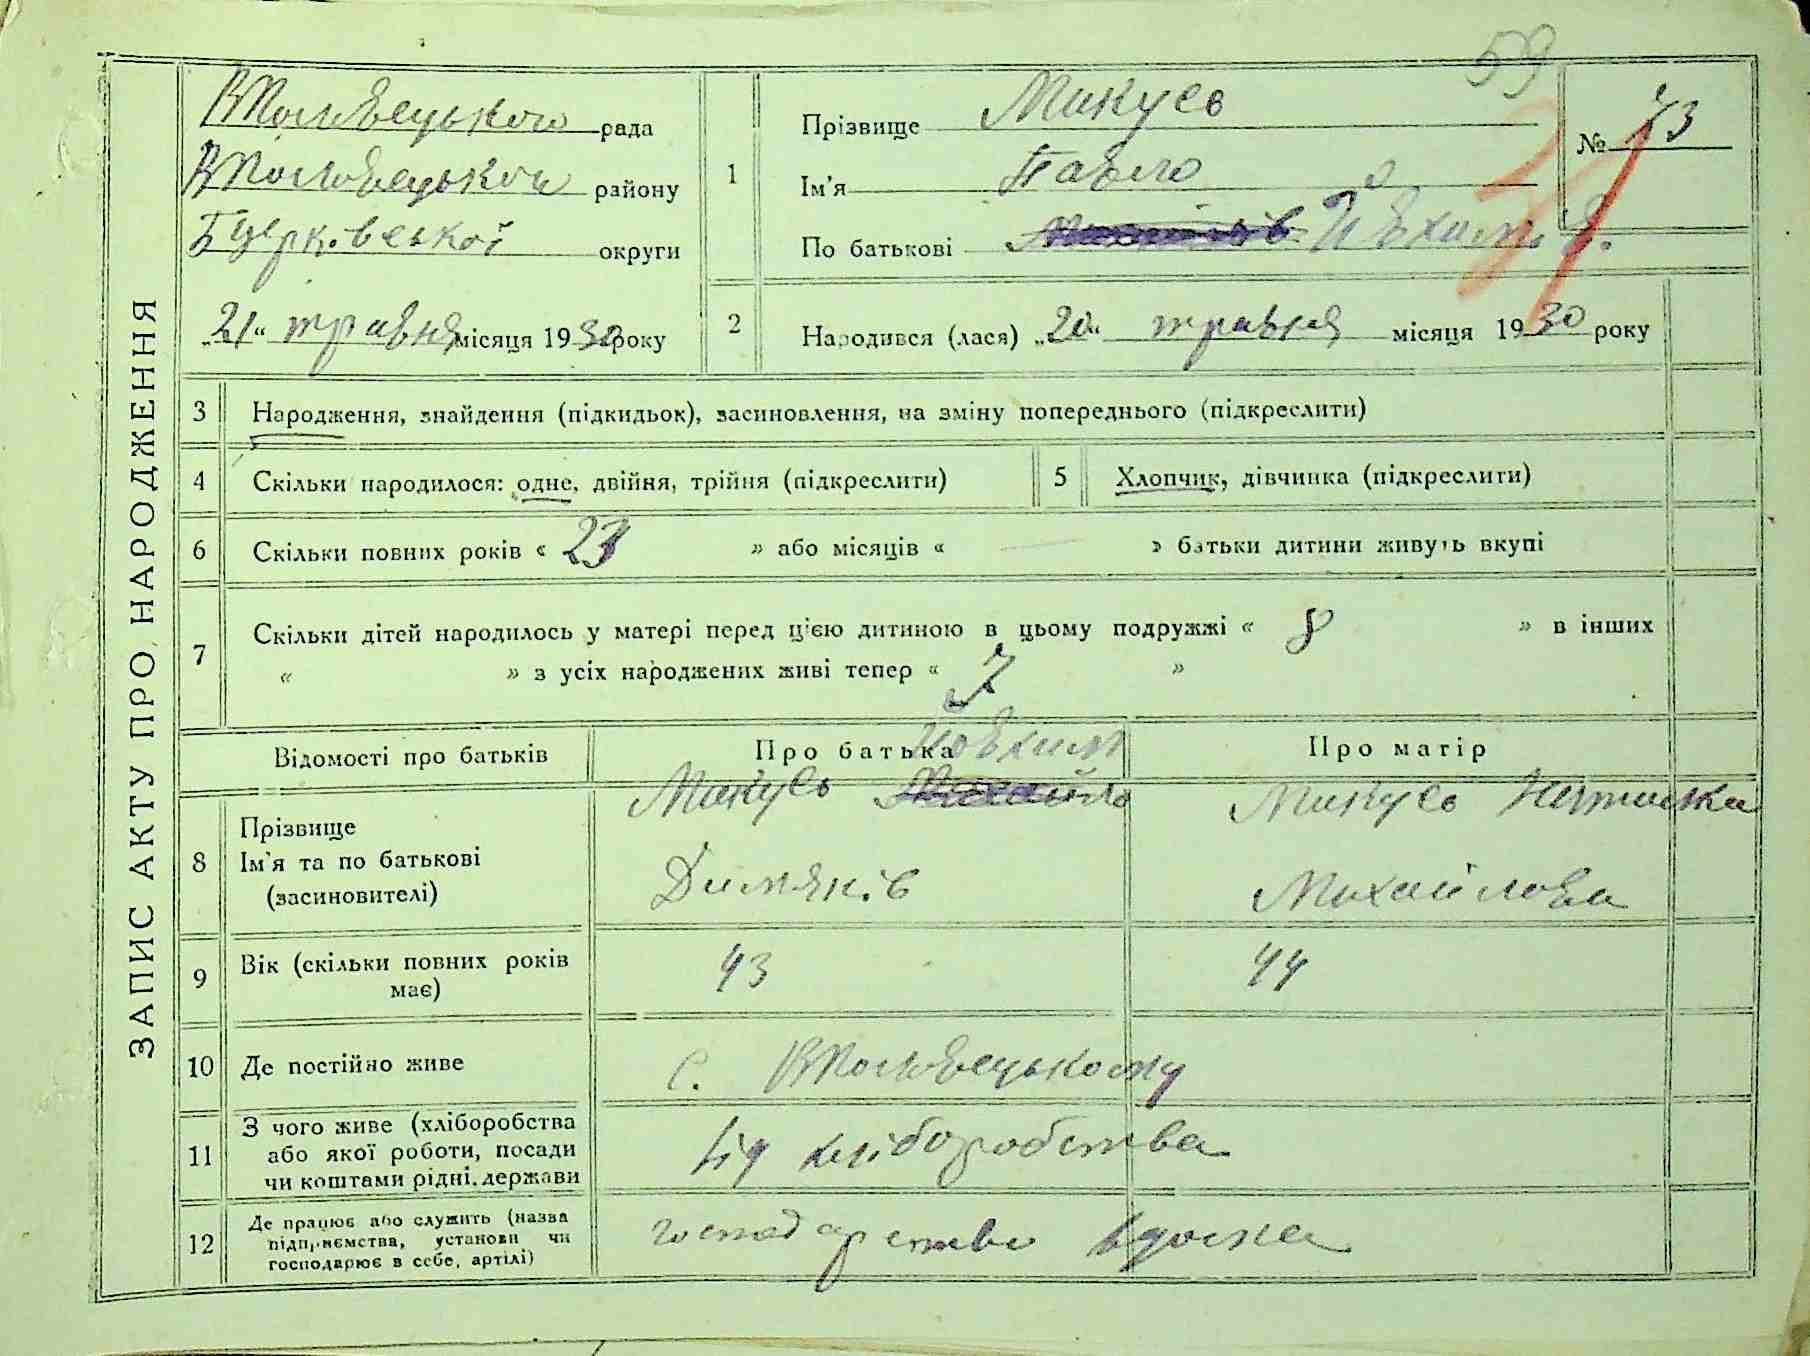 59
ЗАПИС АКТУ ПРО НАРОДЖЕННЯ
ВПоловецького рада
ВПоловецького району
Бцерківської округи
„21“ травня місяця 1930 року
1
Прізвище Микусь
Ім'я Павло
По батькові Йовхимів.
№ 73
2
Народився (лася) „20“ травня місяця 1930 року
3 Народження, знайдення (підкидьок), засиновлення, на зміну попереднього (підкреслити)
4 Скільки народилося: одне, двійня, трійня (підкреслити)
5 Хлопчик, дівчинка (підкреслити)
6 Скільки повних років « » або місяців « — » батьки дитини живуть вкупі
7 Скільки дітей народилось у матері перед цією дитиною в цьому подружжі « 8 » в інших
« » з усіх народжених живі тепер « 7 »
Відомості про батьків Про батька Про матір
Йовхим
8 Прізвище Ім'я та по батькові (засиновителі)
Микусь Михайло
Микусь
Михайлова
9 Вік (скільки повних років має) 43 44
10 Де постійно живе с. ВПоловецькому
11 З чого живе (хліборобства або якої роботи, посади чи коштами рідні, держави від хліборобства
12 Де працює або служить (назва підприємства, установи чи господарює в себе, артілі) господарство